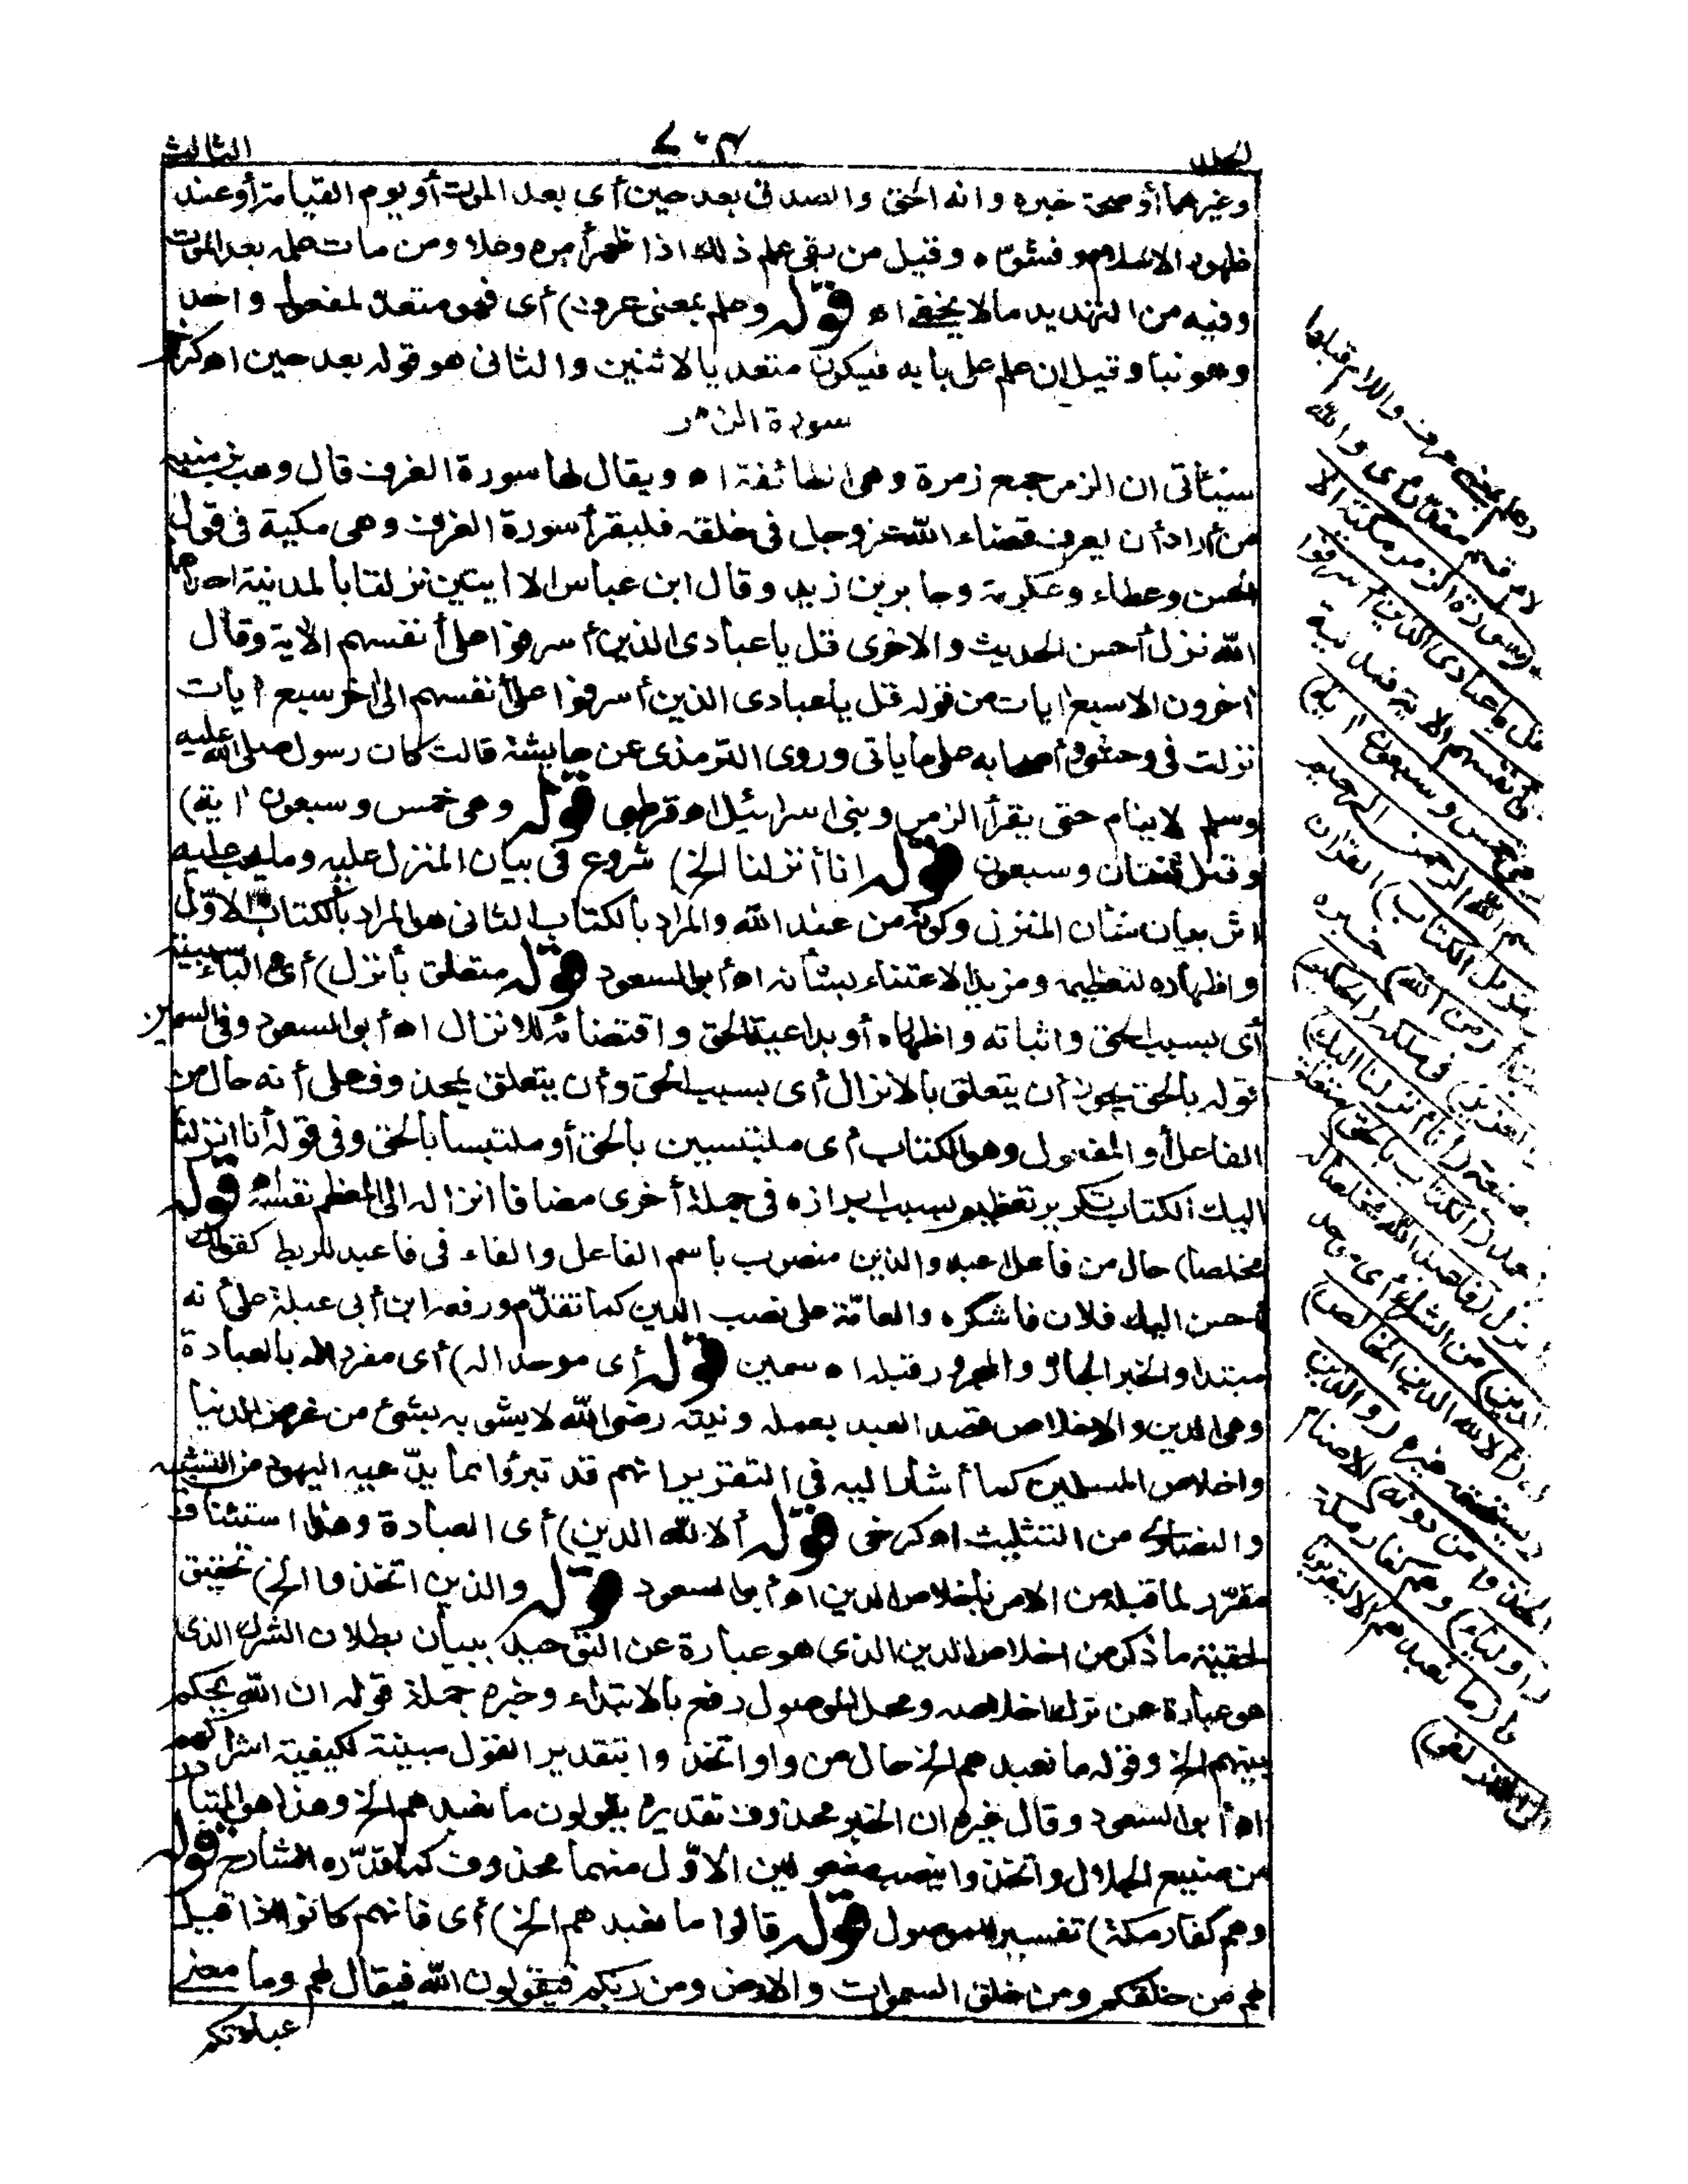 المجلد
٧٠٤
الثالث
وغيرهما أو صحة خبره وانه الحق والصدق بعد حين أى بعد الموت أو يوم القيامة أو عند
ظهور الاسلام وفشوّه وقيل من بقى علم ذلك اذا ظهر أمره وعلا ومن مات علمه بعد الموت
وفيه من التهديد مالا يخفى اه قوله وعلم بمعنى عرف) أى فهو متعدّ لمفعول واحد
وهو نبأ وقيل ان علم على بابه فيكون متعديا لاثنين والثانى هو قوله بعد حين اه كرخى
سورة الزمر
سيأتى ان الزمر جمع زمرة وهى الطائفة اه ويقال لها سورة الغرف قال وهب بن منبه
من أراد أن يعرف قضاء الله عز وجل فى خلقه فليقرأ سورة الغرف وهى مكية فى قول
الحسن وعطاء وعكرمة وجابر بن زيد وقال ابن عباس الا ايتين نزلتا بالمدينة احداهما
الله نزل أحسن الحديث والاخرى قل يا عبادى الذين أسرفوا على أنفسهم الاية وقال
اخرون الا سبع ايات من قوله قل يا عبادى الذين أسرفوا على أنفسهم الى اخر سبع ايات
نزلت فى وحشى وأصحابه على ما ياتى وروى الترمذى عن عايشة قالت كان رسول صلى الله عليه
وسلم لا ينام حتى يقرأ الزمر وبنى اسرائيل اه قرطبى قوله وهى خمس وسبعون اية)
وقيل ثنتان وسبعون قوله انا أنزلنا الخ) شروع فى بيان المنزل عليه وما يجب عليه
اثر بيان شأن المنزل وكونه من عند الله والمراد بالكتاب الثانى هو المراد بالكتاب الاوّل
واظهاره لتعظيمه ومزيد الاعتناء بشأنه اه أبو السعود قوله متعلق بأنزل) أى والباء سببية
أى بسبب الحق واثباته واظهاره أو بداعية الحق واقتضائه للانزال اه أبو السعود وفى السمين
قوله بالحق يجوز أن يتعلق بالانزال أى بسبب الحق وأن يتعلق بمحذوف على أنه حال من
الفاعل أو المفعول وهو الكتاب أى ملتبسين بالحق أو ملتبسا بالحق وفى قوله أنا انزلنا
اليك الكتاب تكرير تعظيم بسبب ابرازه فى جملة أخرى مضافا انزاله الى المعظم نفسه اه قوله
مخلصا) حال من فاعل اعبد والدين منصوب باسم الفاعل والفاء فى فاعبد للربط كقولك
أحسن اليك فلان فاشكره والعامّة على نصب الدين كما تقدّم ورفعه ابن أبى عبلة على أنه
مبتدا والخبر الجار والمجرور قبله اه سمين قوله أى موحدا له) أى مفردا له بالعبادة
وهى الدين والاخلاص قصد العبد بعمله ونيته رضى الله لا يشوبه بشئ من غرض الدنيا
واخلاص المسلمين كما أشار اليه فى التقرير انهم قد تبرؤا مما يدّعيه اليهود من التشبيه
والنصارى من التثليث اه كرخى قوله ألا لله الدين) أى العبادة وهذا استئناف
مقرّر لما قبله من الامر باخلاص الدين اه أبو السعود قوله والذين اتخذوا الخ) تحقيق
لحقية ما ذكر من اخلاص الدين الذى هو عبارة عن التوحيد ببيان بطلان الشرك الذى
هو عبارة عن ترك اخلاصه ومحل الموصول رفع بالابتداء وخبره جملة قوله ان الله يحكم
بينهم الخ وقوله ما نعبدهم الخ حال من واو اتخذوا بتقدير القول مبينة لكيفية اشراكهم
اه أبو السعود وقال غيره ان الخبر محذوف تقديره يقولون ما نعبدهم الخ وهذا هو المتبادر
من صنيع الجلال واتخذوا ينصب مفعولين الاوّل منهما محذوف كما قدّره الشارح قوله
وهم كفار مكة) تفسير للموصول قوله قالوا ما نعبدهم الخ) أى فانهم كانوا اذا قيل
لهم من خلقكم ومن خلق السموات والارض ومن ربكم فيقولون الله فيقال لهم وما معنى
عبادتكم
وعلم بمعنى عرف واللام قبلها
لام قسم مقدّر أى والله
(سورة الزمر مكية الا
قل يا عبادى الذين أسرفوا
على أنفسهم الاية فمدنية
وهى خمس وسبعون اية)
بسم الله الرحمن الرحيم
(تنزيل الكتاب) القران
مبتدأ (من الله) خبره
(العزيز) فى ملكه (الحكيم)
فى صنعه (انا أنزلنا اليك)
يا محمد (الكتاب بالحق) متعلق
بأنزل (فاعبد الله مخلصا له
الدين) من الشرك أى موحدا
له (ألا لله الدين الخالص)
لا يستحقه غيره (والذين
اتخذوا من دونه) الاصنام
(أولياء) وهم كفار مكة
قالوا (ما نعبدهم الا ليقربونا
الى الله زلفى)